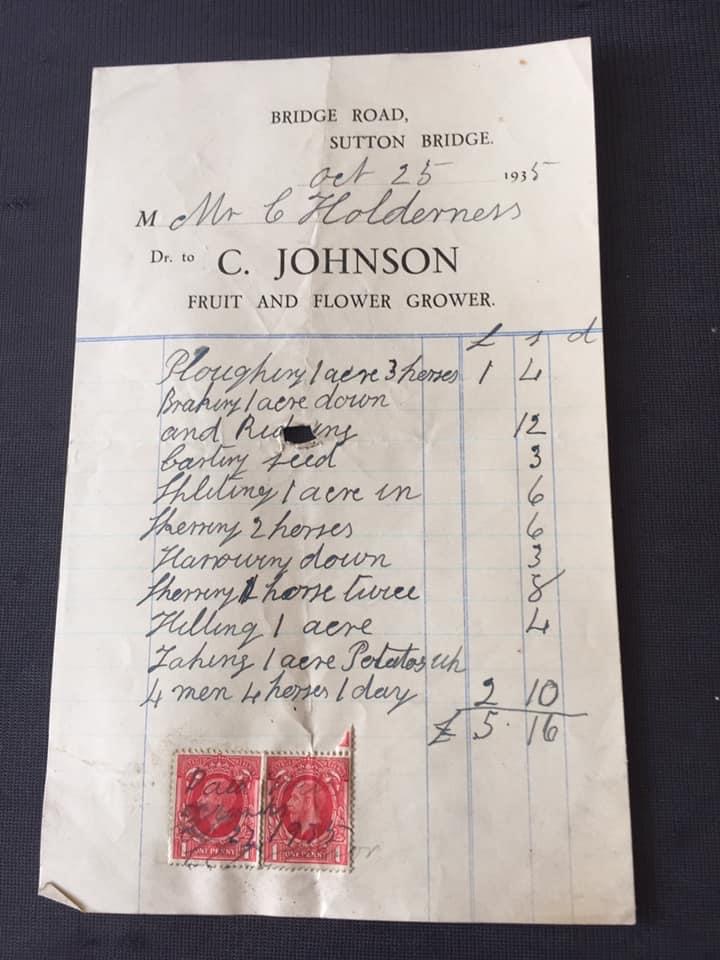 BRIDGE ROAD,
SUTTON BRIDGE.
Oct 25 1935
M Mr C Holderness
Dr. to C. JOHNSON
FRUIT AND FLOWER GROWER.
£ s d
Ploughing 1 acre 3 horses 1 4
Braking 1 acre down
and Ridging 12
Carting seed 3
Spliting 1 acre in 6
Skerring 2 horses 6
Harrowing down 3
Skerring 1 horse twice 8
Hilling 1 acre 4
Taking 1 acre Potatos up
4 men 4 horses 1 day 2 10
£ 5. 16
Paid
1935
ONE PENNY ONE PENNY